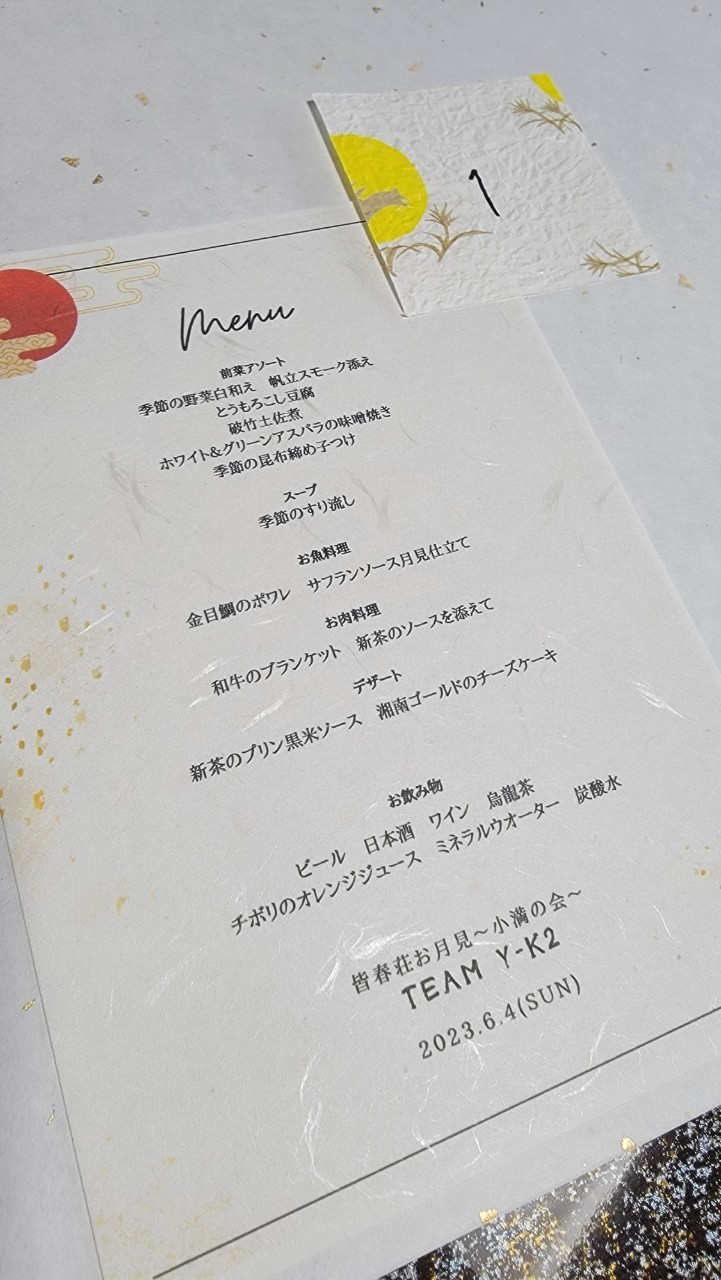 1
Menu
前菜アソート
季節の野菜白和え　帆立スモーク添え
とうもろこし豆腐
破竹土佐煮
ホワイト&グリーンアスパラの味噌焼き
季節の昆布締め子つけ
スープ
季節のすり流し
お魚料理
金目鯛のポワレ　サフランソース月見仕立て
お肉料理
和牛のブランケット　新茶のソースを添えて
デザート
新茶のプリン黒米ソース　湘南ゴールドのチーズケーキ
お飲み物
ビール　日本酒　ワイン　烏龍茶
チボリのオレンジジュース　ミネラルウオーター　炭酸水
皆春荘お月見～小満の会～
TEAM Y-K2
2023.6.4(SUN)